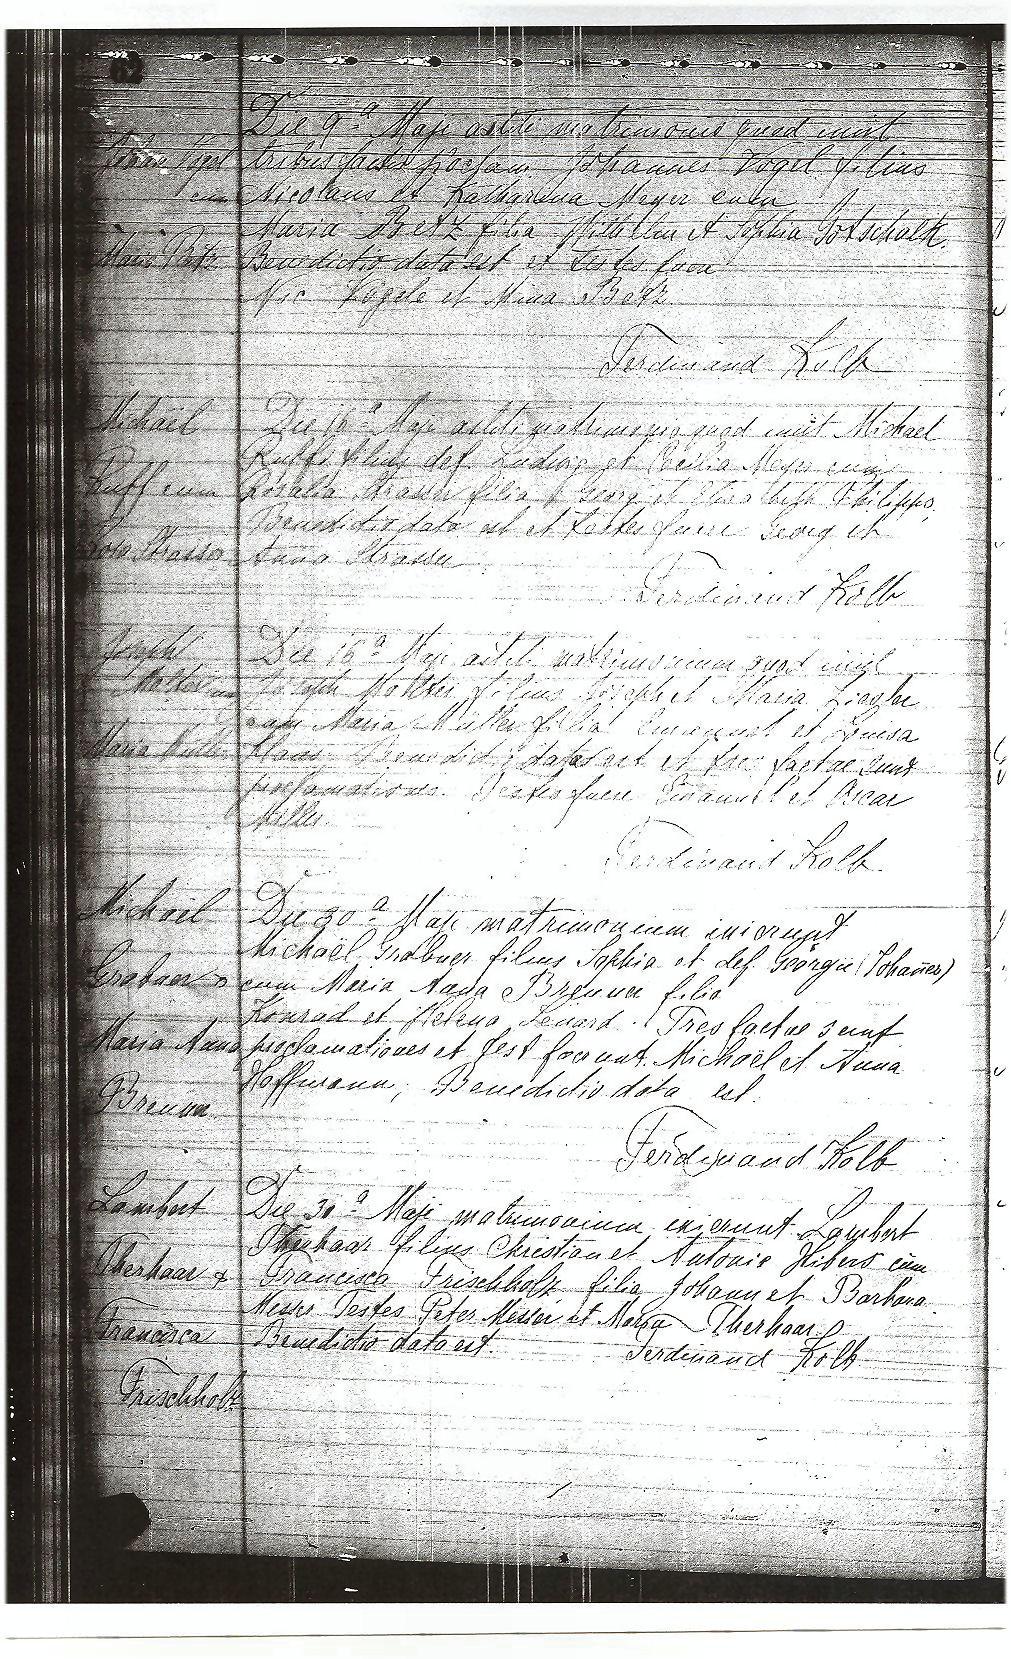 62
Die 9ª Maji astiti matrimonio quod iniit
Johan Vogel
tribus factis proclam Johannes Vogel filius
cum
Nicolaus et Katharina Meyer cum
Maria Betz filia Wilhelm et Sophia Gotschalk.
Maria Betz
Benedictio data est et testes fuere
Nic Vogele et Mina Betz
Ferdinand Kolb
Michael
Ruff cum
Rosa Strasser
Die 16ª Maji astiti matrimonio quod iniit Michael
Ruff filius def. Ludwig et Cecilia Meyer cum
Rosalia Strasser filia Georg et Elisabeth Philippo.
Benedictio data est et testes fuere Georg et
Anna Strasser
Ferdinand Kolb
Joseph
Molter cum
Maria Muller
Die 16ª Maji astiti matrimonium quod iniit
Joseph Molter filius Joseph et Maria Ziegler
cum Maria Muller filia Emanuel et Louisa
Klaus Benedictio data est et tres factae sunt
proclamationes. Testes fuere Emanuel et Oscar
Miller.
Ferdinand Kolb.
Michaël
Grabner &
Maria Anna
Brenner
Die 30ª Maji matrimonium inierunt
Michaël Grabner filius Sophia et def. Georgii (Johannes)
cum Maria Anna Brenner filia
Konrad et Helena Lenard. Tres factae sunt
proclamationes et test fuerunt Michaël et Anna
Hoffmann, Benedictio data est.
Ferdinand Kolb
Lambert
Therhaar &
Francisca
Frischholz
Die 30ª Maji matrimonium inierunt Lambert
Therhaar filius Christian et Antonio Hibers cum
Francisca Frischholz filia Johann et Barbara.
Messer Testes Peter Messer et Maria Therhaar.
Benedictio data est.
Ferdinand Kolb